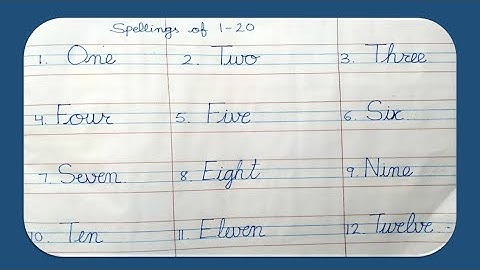 Spellings of 1-20
1. One 2. Two 3. Three
4. Four 5. Five 6. Six
7. Seven 8. Eight 9. Nine
10. Ten 11. Eleven 12. Twelve